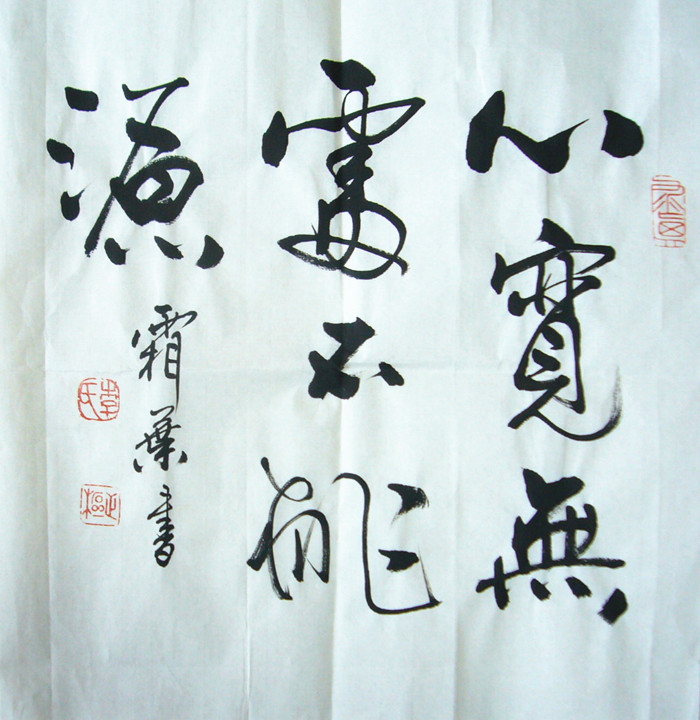 心寬無
處不桃
源
霜葉書
李氏